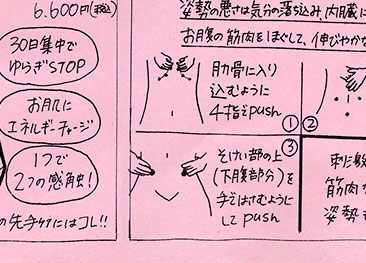 6.600円(税込)
30日集中で
ゆらぎSTOP
お肌に
エネルギーチャージ
1つで
2つの感触!
の先手ケアにはコレ!!
姿勢の悪さは気分の落ち込み、内臓に
お腹の筋肉をほぐして、伸びやかな
肋骨に入り
込むように
4指でpush
①
②
③
そけい部の上
(下腹部分)を
手ではさむように
して push
刺激
筋肉が
姿勢も